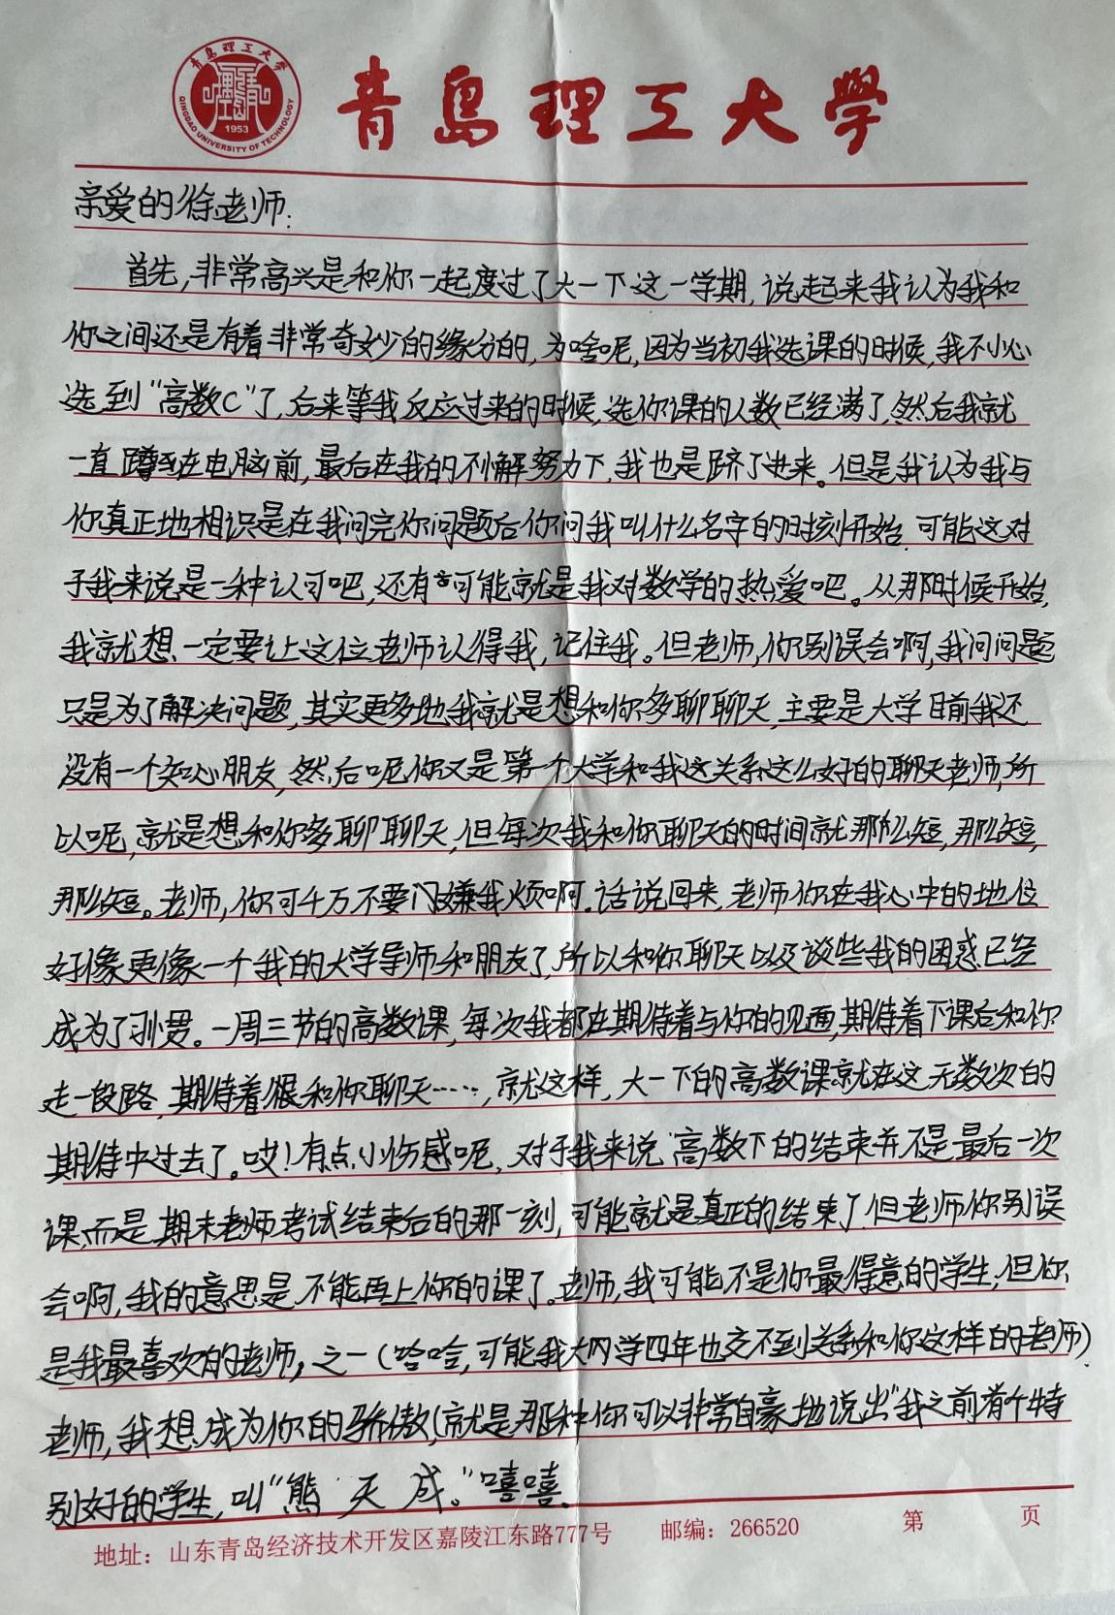 青岛理工大学
QINGDAO UNIVERSITY OF TECHNOLOGY
1953
青岛理工大学
亲爱的徐老师:
首先,非常高兴是和你一起度过了大一下这一学期,说起来我认为我和
你之间还是有着非常奇妙的缘分的,为啥呢,因为当初我选课的时候,我不小心
选到“高数C”了,后来等我反应过来的时候,选你课的人数已经满了,然后我就
一直蹲在电脑前,最后在我的不懈努力下,我也是跻了进来。但是我认为我与
你真正地相识是在我问完你问题后你问我叫什么名字的时刻开始,可能这对
于我来说是一种认可吧,还有可能就是我对数学的热爱吧。从那时候开始,
我就想,一定要让这位老师认得我,记住我。但老师,你别误会啊,我问问题
只是为了解决问题,其实更多地,我就是想和你多聊聊天,主要是大学目前我还
没有一个知心朋友,然后呢你又是第一个大学和我这关系这么好的聊天老师,所
以呢,就是想和你多聊聊天,但每次我和你聊天的时间就那么短,那么短,
那么短。老师,你可千万不要嫌我烦啊。话说回来,老师你在我心中的地位
好像更像一个我的大学导师和朋友了,所以和你聊天以及谈些我的困惑已经
成为了习惯。一周三节的高数课,每次我都在期待着与你的见面,期待着下课后和你
走一段路,期待着和你聊天……,就这样,大一下的高数课就在这无数次的
期待中过去了。哎!有点小伤感呢,对于我来说,高数下的结束并不是最后一次
课,而是期末考试结束后的那一刻,可能就是真正的结束了,但老师你别误
会啊,我的意思是不能再上你的课了。老师,我可能不是你最得意的学生,但你
是我最喜欢的老师,之一(哈哈,可能我大学四年也交不到关系和你这样的老师)
老师,我想成为你的骄傲,(就是那种你可以非常自豪地说出“我之前有个特
别好的学生,叫“熊天成。”嘻嘻。
地址:山东青岛经济技术开发区嘉陵江东路777号 邮编:266520 第 页